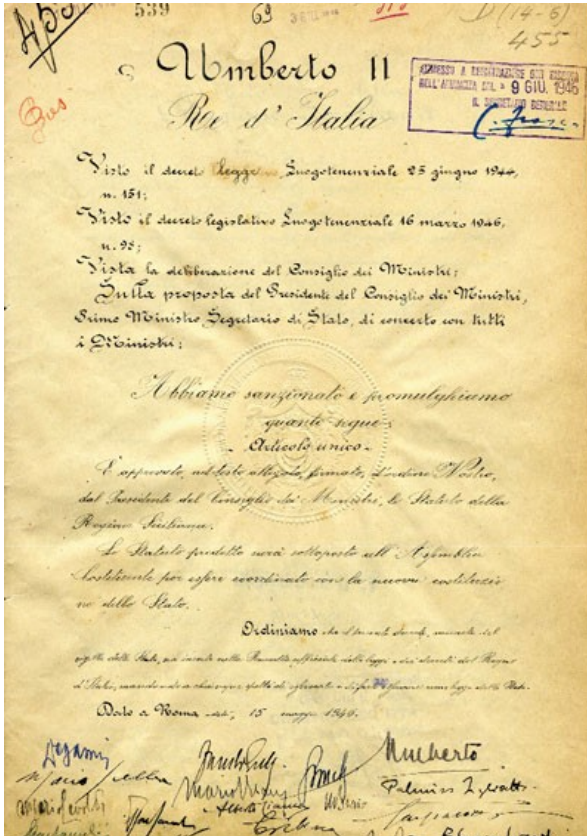 455
539
69
D (14-6)
455
Umberto II
9 GIU. 1946
Re d'Italia
IL SEGRETARIO GENERALE
Visto il decreto legge Luogotenenziale 25 giugno 1944,
n. 151;
Visto il decreto legislativo Luogotenenziale 16 marzo 1946,
n. 98;
Vista la deliberazione del Consiglio dei Ministri;
Sulla proposta del Presidente del Consiglio dei Ministri,
Primo Ministro Segretario di Stato, di concerto con tutti
i Ministri;
Abbiamo sanzionato e promulghiamo
quanto segue:
- Articolo unico -
È approvato, nel testo allegato, firmato, d'ordine Nostro,
dal Presidente del Consiglio dei Ministri, lo Statuto della
Regione Siciliana.
Lo Statuto predetto sarà sottoposto all'Assemblea
Costituente per essere coordinato con la nuova costituzio
ne dello Stato.
Ordiniamo che il presente decreto, munito del
sigillo dello Stato, sia inserto nella Raccolta ufficiale delle leggi e dei decreti del Regno
d'Italia, mandando a chiunque spetti di osservarlo e di farlo osservare come legge dello Stato.
Dato a Roma addì, 15 maggio 1946.
Umberto